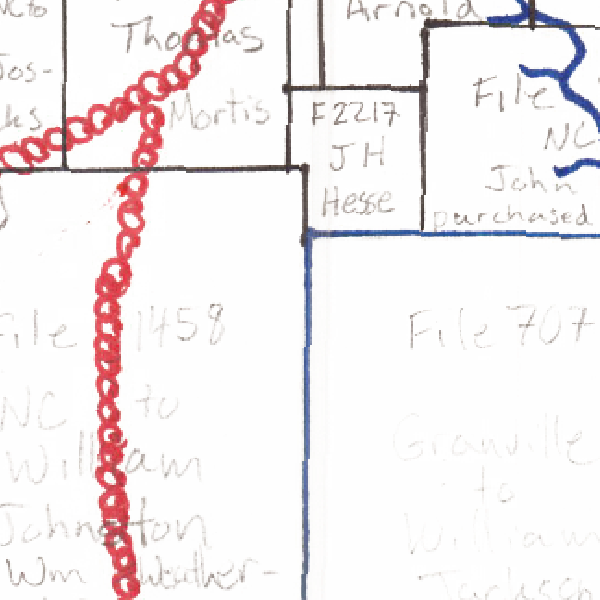 NC to
Jos-
Thomas
Mortis
Arnold
F2217
JH
Hesse
File
NC
John
purchased
File 1458
NC to
William
Johnston
Wm Weather-
File 707
Granville
to
William
Jackson